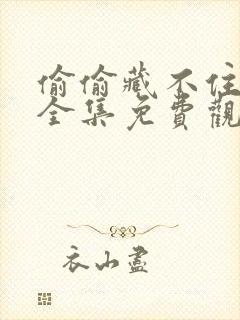 偷偷藏不住
全集免費觀
衣山盡